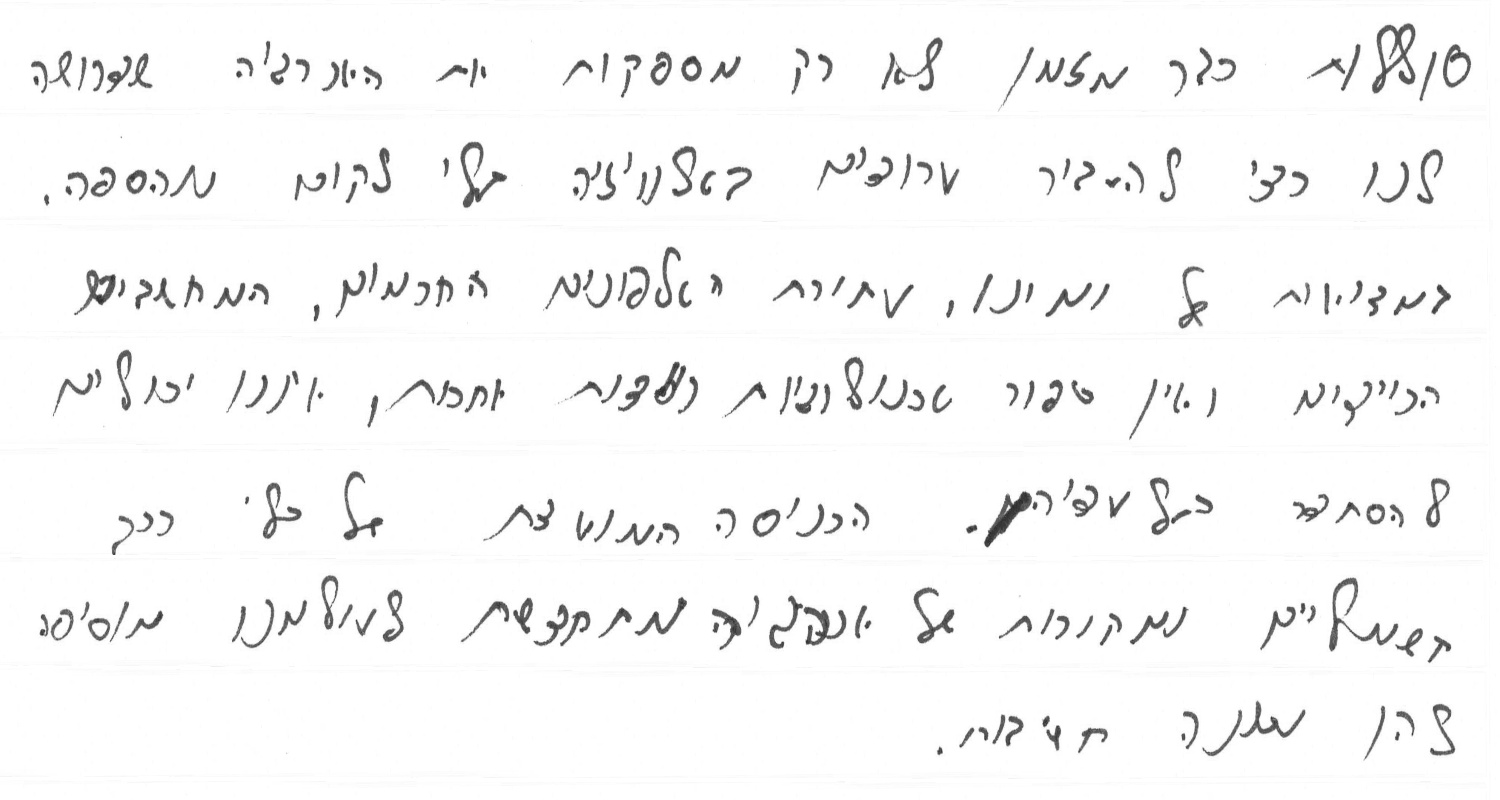 סוללות כבר מזמן לא רק מספקות את האנרגיה שדרושה
לנו כדי להעביר ערוצים בטלוויזיה בלי לקום מהספה.
במציאות של ימינו, עתירת הטלפונים החכמים, המחשבים
הניידים ואין ספור טכנולוגיות נוספות אחרות, איננו יכולים
להסתדר בלעדיהן. הכניסה המואצת של כלי רכב
חשמליים ומקורות של אנרגיה מתחדשת לעולמנו מוסיפה
להן משנה חשיבות.